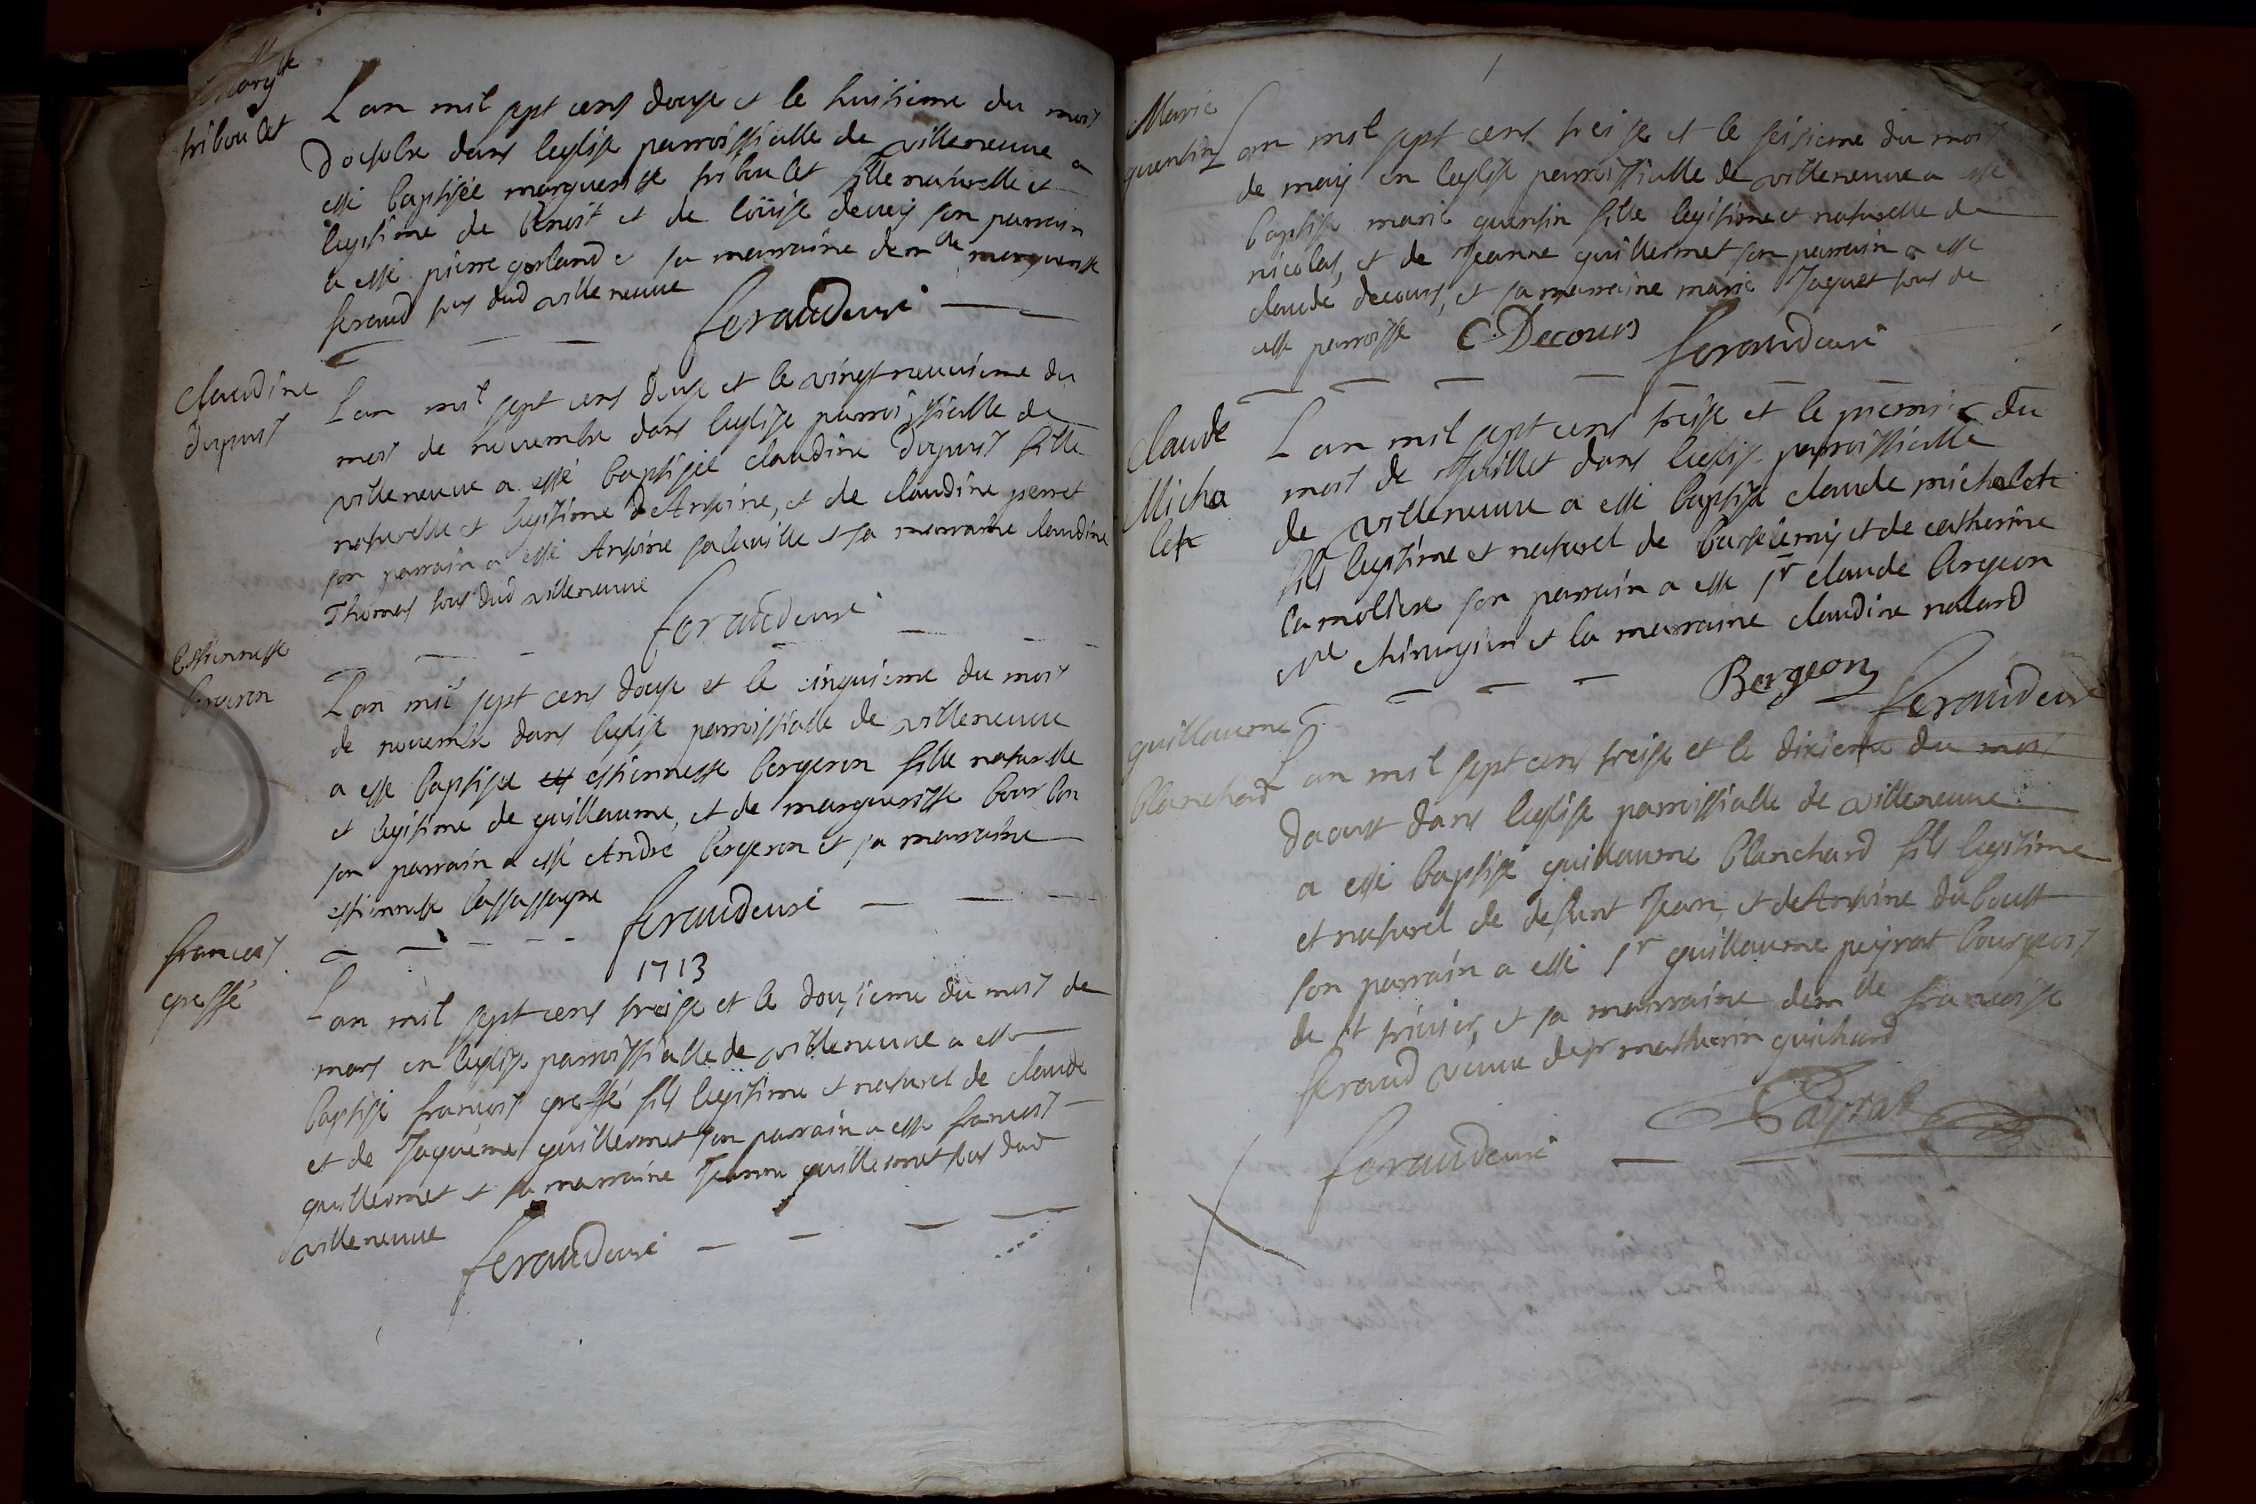 Marg.te
triboulet
Lan mil sept cens douze et le huitieme du mois
doctobre dans leglise parroissialle de villeneuve a
esté baptisée marguerite triboulet fille naturelle et
legitime de Benoit et de loüise devey son parrain
a esté pierre gorland et sa marraine dem.lle marguerite
feraud tous dud villeneuve
feraud curé
claudine
dupuis
Lan mil sept cens douze et le vingt neuvieme du
mois de novembre dans leglise parroissialle de
villeneuve a esté baptisée claudine dupuis fille
naturelle et legitime d'Antoine, et de claudine perret
son parrain a esté Antoine et sa marraine claudine
Thomas tous dud villeneuve
feraud curé
Estiennette
bergeron
Lan mil sept cens douze et le cinquieme du mois
de novembre dans leglise parroissialle de villeneuve
a esté baptisée estiennette bergeron fille naturelle
et legitime de guillaume, et de margueritte bourbon
son parrain a esté André bergeron et sa marraine
estiennette lassassagne
feraud curé
francois
gressé
1713
Lan mil sept cens treize et le douzieme du mois de
mars en leglise parroissialle de villeneuve a esté
baptisé francois gressé fils legitime et naturel de claude
et de Jaqueme guillermet son parrain a esté francois
guillermet et sa marraine Jeanne guillermet tous dud
villeneuve
feraud curé
Marie
quentin
Lan mil sept cens treize et le seizieme du mois
de may en leglise parroissialle de villeneuve a esté
baptisé marie quentin fille legitime et naturelle de
nicolas, et de Jeanne guillermet son parrain a esté
claude decours, et sa marraine marie Jaquet tous de
cette parroisse
C Decours
feraud curé
Claude
Micha
lete
Lan mil sept cens treize et le premier du
mois de Juillet dans leglise parroissialle
de villeneuve a esté baptisé claude michalete
fils legitime et naturel de bartelemy et de catherine
lamoliere son parrain a esté sr claude bergeon
me chirurgien et la marraine claudine nalard
Bergeon
feraud curé
guillaume
blanchard
Lan mil sept cens treize et le dixieme du mois
daoust dans leglise parroissialle de villeneuve
a esté baptisé guillaume blanchard fils legitime
et naturel de defunt Jean, et de Antoine duboust
son parrain a esté sr guillaume peyrat bourgeois
de st trivier, et sa marraine dem.lle francoise
feraud veuve de sr mathurin guichard
Payrat
feraud curé